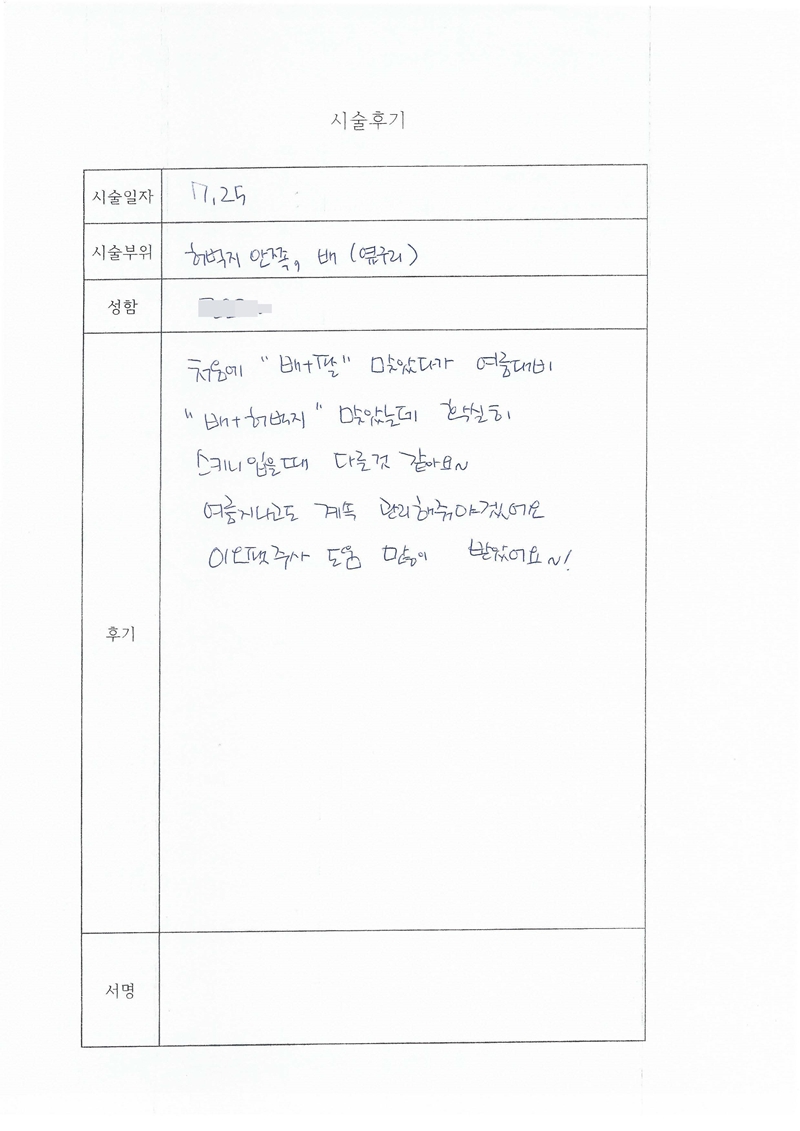 시술후기
시술일자 7.25
시술부위 허벅지 안쪽, 배 (옆구리)
성함
처음에 "배+팔" 맞았다가 여름대비
"배+허벅지" 맞았는데 확실히
스키니 입을때 다를것 같아요~
여름지나고도 계속 관리해줘야겠어요
이오팻주사 도움 많이 받았어요~!
후기
서명